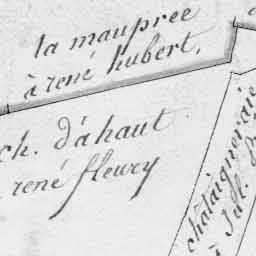 la maupree
à rené hubert.
ch. d'ahaut
rené fleury
chataigneraie
à Jul.